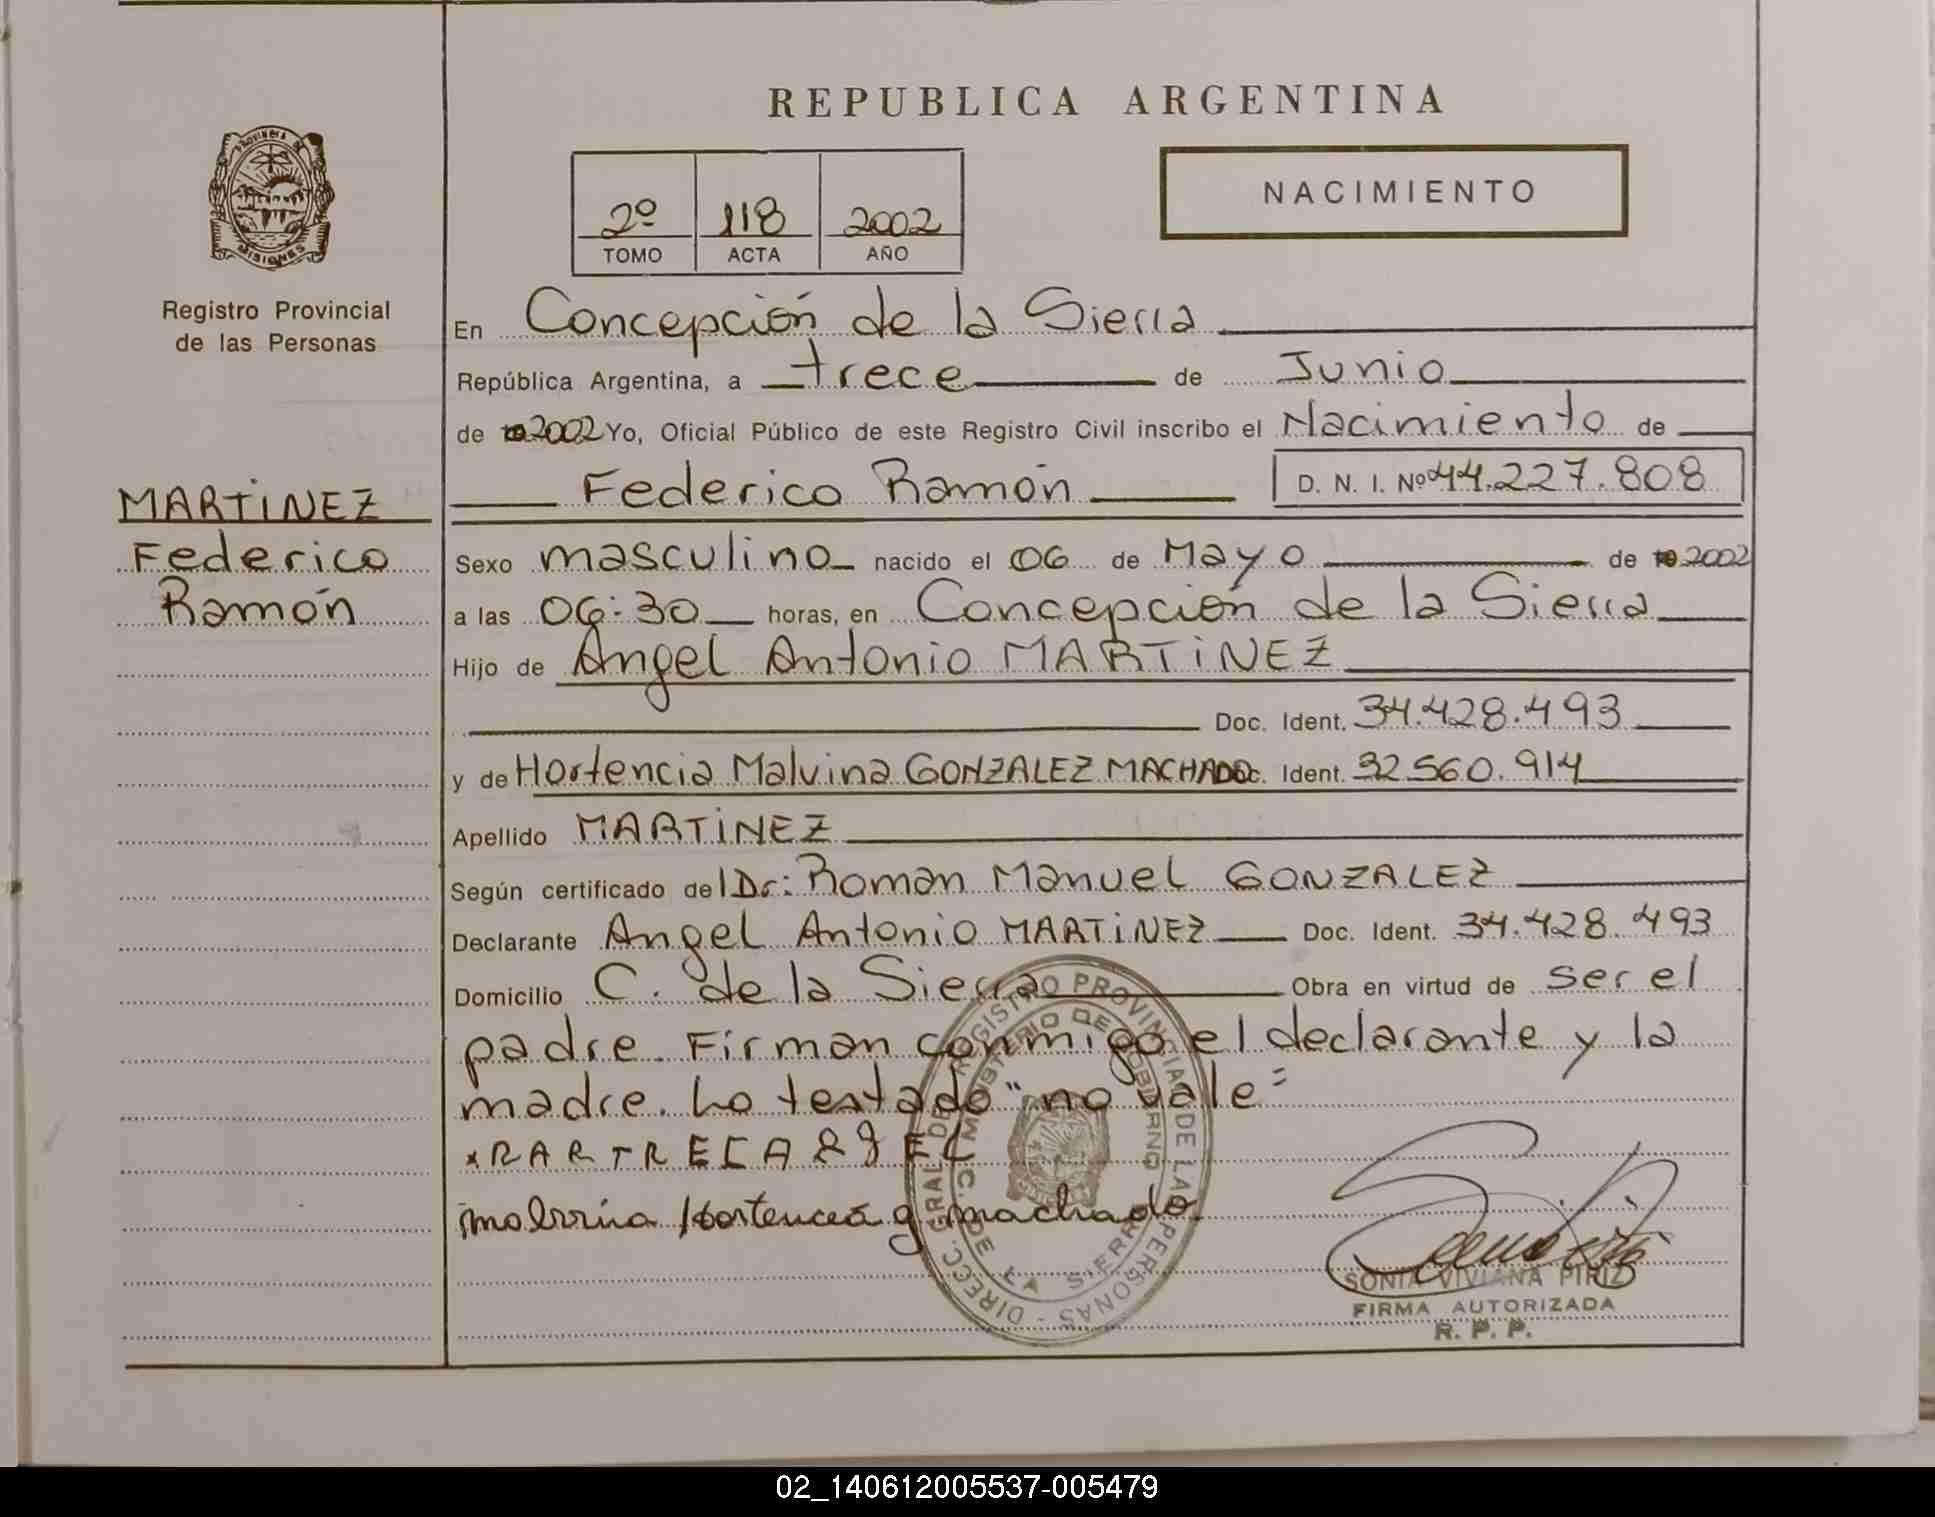 REPUBLICA ARGENTINA
PROVINCIA DE
MISIONES
2º 118 2002
TOMO ACTA AÑO
NACIMIENTO
Registro Provincial
de las Personas
MARTINEZ
Federico
Ramón
En Concepción de la Sierra
República Argentina, a trece de Junio
de 2002 Yo, Oficial Público de este Registro Civil inscribo el Nacimiento de
Federico Ramón D. N. I. Nº 44.227.808
Sexo masculino nacido el 06 de Mayo de 2002
a las 06:30 horas, en Concepción de la Sierra
Hijo de Angel Antonio MARTINEZ
Doc. Ident. 34.428.493
y de Hortencia Malvina GONZALEZ MACHADO Doc. Ident. 32.560.914
Apellido MARTINEZ
Según certificado del Dr: Roman Manuel GONZALEZ
Declarante Angel Antonio MARTINEZ Doc. Ident. 34.428.493
Domicilio C. de la Sierra Obra en virtud de ser el
padre. Firman conmigo el declarante y la
madre. Lo testado "no vale"
malvina Hortencia g machado
DIRECC. GRAL. DE REGISTRO PROVINCIAL DE LAS PERSONAS
MINISTERIO DE GOBIERNO
C. DE LA SIERRA
SONIA VIVIANA PIRIZ
FIRMA AUTORIZADA
R. P. P.
02_140612005537-005479